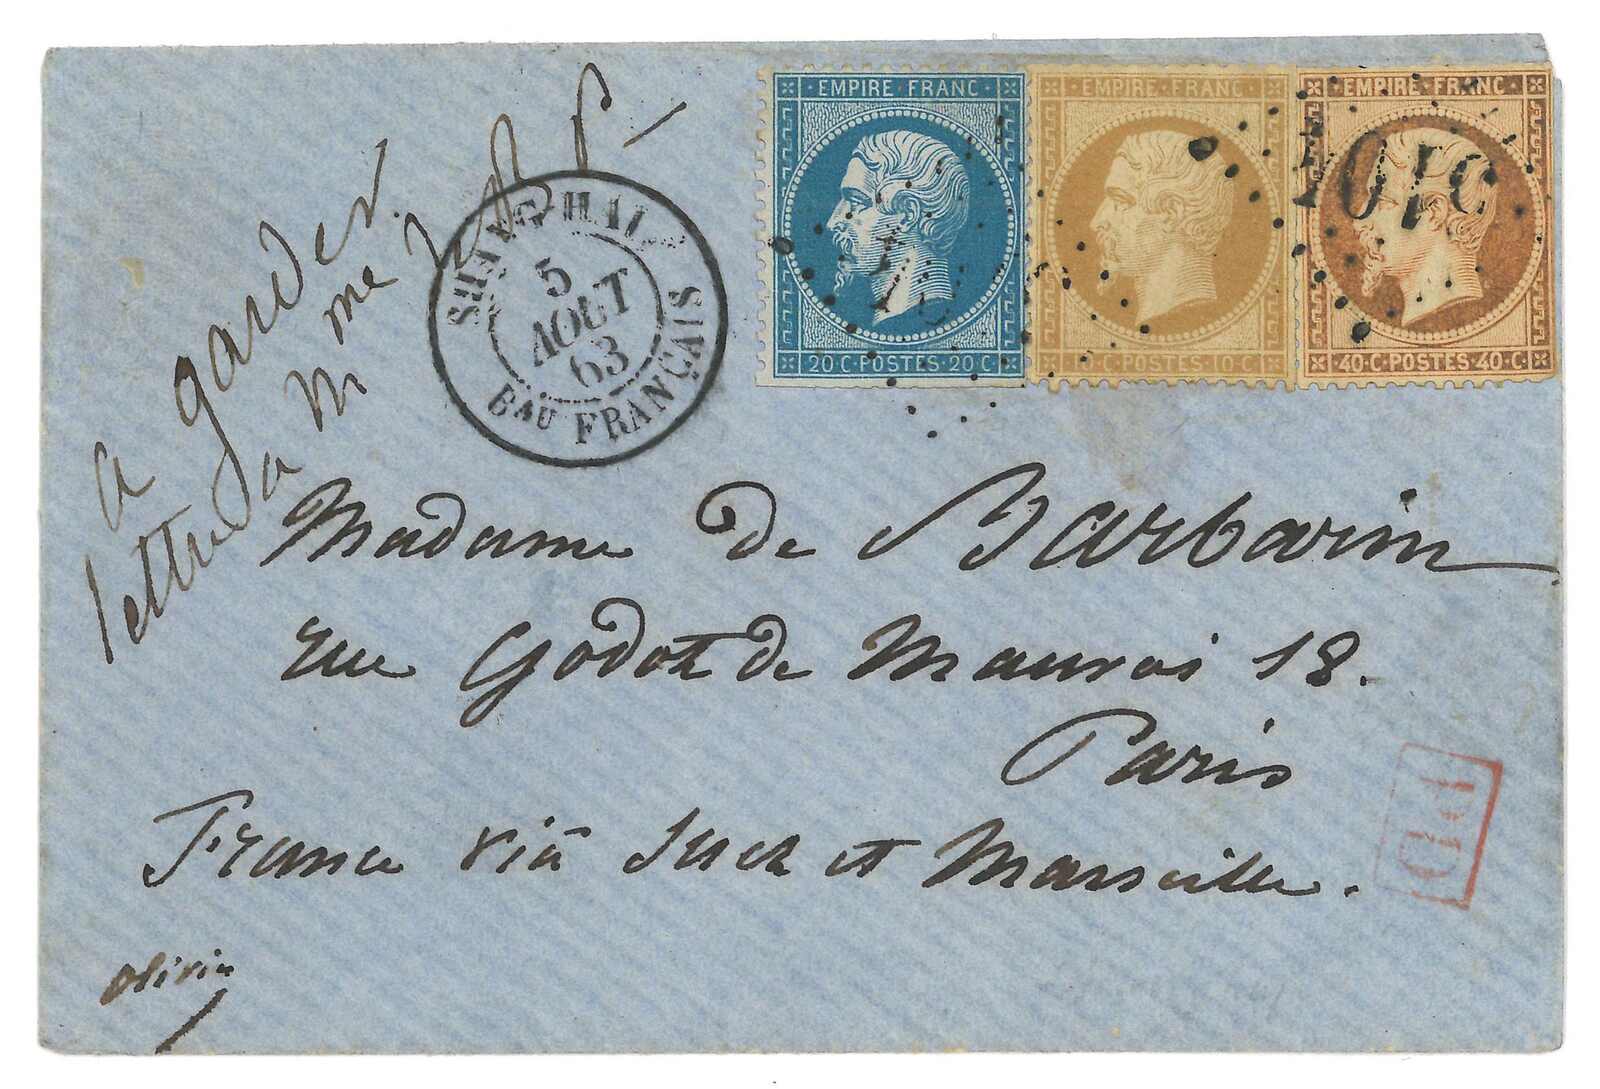 EMPIRE FRANC
20 C · POSTES · 20 C
EMPIRE FRANC
10 C · POSTES · 10 C
EMPIRE FRANC
40 · C · POSTES · 40 · C
5104
SHANG-HAI
5
AOUT
63
BAU FRANÇAIS
a garder
lettre a M me
Madame de Barbarin
rue Godot de Mauroi 18.
Paris
France viâ Suez et Marseille.
PD
olivier